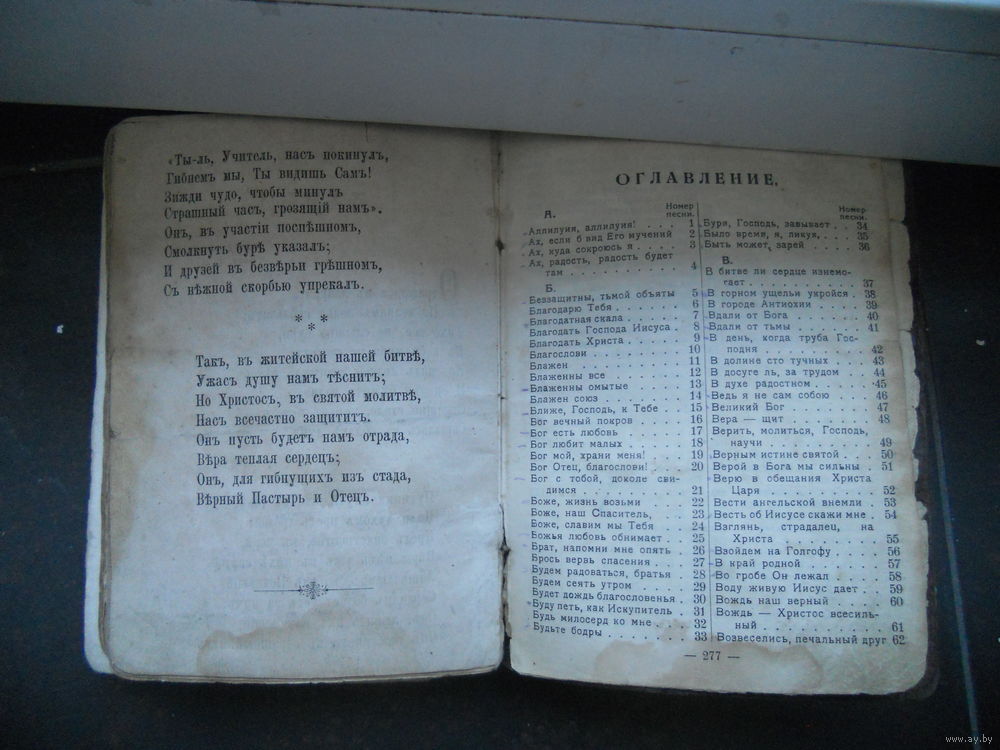 «Ты-ль, Учитель, насъ покинулъ,
Гибнемъ мы, Ты видишь Самъ!
Зижди чудо, чтобы минулъ
Страшный часъ, грозящій намъ».
Онъ, въ участіи поспѣшномъ,
Смолкнуть бурѣ указалъ;
И друзей въ безвѣрьи грѣшномъ,
Съ нѣжной скорбью упрекалъ.
* * *
Такъ, въ житейской нашей битвѣ,
Ужасъ душу намъ тѣснитъ;
Но Христосъ, въ святой молитвѣ,
Насъ всечастно защититъ.
Онъ пусть будетъ намъ отрада,
Вѣра теплая сердецъ;
Онъ, для гибнущихъ изъ стада,
Вѣрный Пастырь и Отецъ.
ОГЛАВЛЕНИЕ.
Номер
песни.
А.
Аллилуия, аллилуия! . . . 1
Ах, если б вид Его мучений 2
Ах, куда сокроюсь я . . . . 3
Ах, радость, радость будет
там . . . . . . . . . . . 4
Б.
Беззащитны, тьмой объяты 5
Благодарю Тебя . . . . . . 6
Благодатная скала . . . . . 7
Благодать Господа Иисуса . 8
Благодать Христа . . . . . 9
Благослови . . . . . . . . 10
Блажен . . . . . . . . . 11
Блаженны все . . . . . . . 12
Блаженны омытые . . . . 13
Блажен союз . . . . . . . 14
Ближе, Господь, к Тебе . . . 15
Бог вечный покров . . . . 16
Бог есть любовь . . . . . 17
Бог любит малых . . . . . 18
Бог мой, храни меня! . . . 19
Бог Отец, благослови! . . . 20
Бог с тобой, доколе сви-
димся . . . . . . . . . . 21
Боже, жизнь возьми . . . 22
Боже, наш Спаситель, . . . 23
Боже, славим мы Тебя . . 24
Божья любовь обнимает . . 25
Брат, напомни мне опять . 26
Брось вервь спасения . . . 27
Будем радоваться, братья . 28
Будем сеять утром . . . . 29
Будет дождь благословенья . 30
Буду петь, как Искупитель . 31
Будь милосерд ко мне . . . 32
Будьте бодры . . . . . . . 33
Номер
песни.
Буря, Господь, завывает . . 34
Было время, я, ликуя, . . . 35
Быть может, зарей . . . . 36
В.
В битве ли сердце изнемо-
гает . . . . . . . . . . . 37
В горном ущельи укройся . 38
В городе Антиохии . . . . 39
Вдали от Бога . . . . . . 40
Вдали от тьмы . . . . . . 41
В день, когда труба Гос-
подня . . . . . . . . . . 42
В долине сто тучных . . . . 43
В досуге ль, за трудом . . 44
В духе радостном . . . . . 45
Ведь я не сам собою . . . . 46
Великий Бог . . . . . . . 47
Вера — щит . . . . . . . . 48
Верить, молиться, Господь,
научи . . . . . . . . . . 49
Верным истине святой . . . 50
Верой в Бога мы сильны . 51
Верю в обещания Христа
Царя . . . . . . . . . . 52
Вести ангельской внемли . 53
Весть об Иисусе скажи мне . 54
Взглянь, страдалец, на
Христа . . . . . . . . . . 55
Взойдем на Голгофу . . . . 56
В край родной . . . . . . 57
Во гробе Он лежал . . . . . 58
Воду живую Иисус дает . . 59
Вождь наш верный . . . . 60
Вождь — Христос всесиль-
ный . . . . . . . . . . . 61
Возвеселись, печальный друг 62
— 277 —
www.ay.by